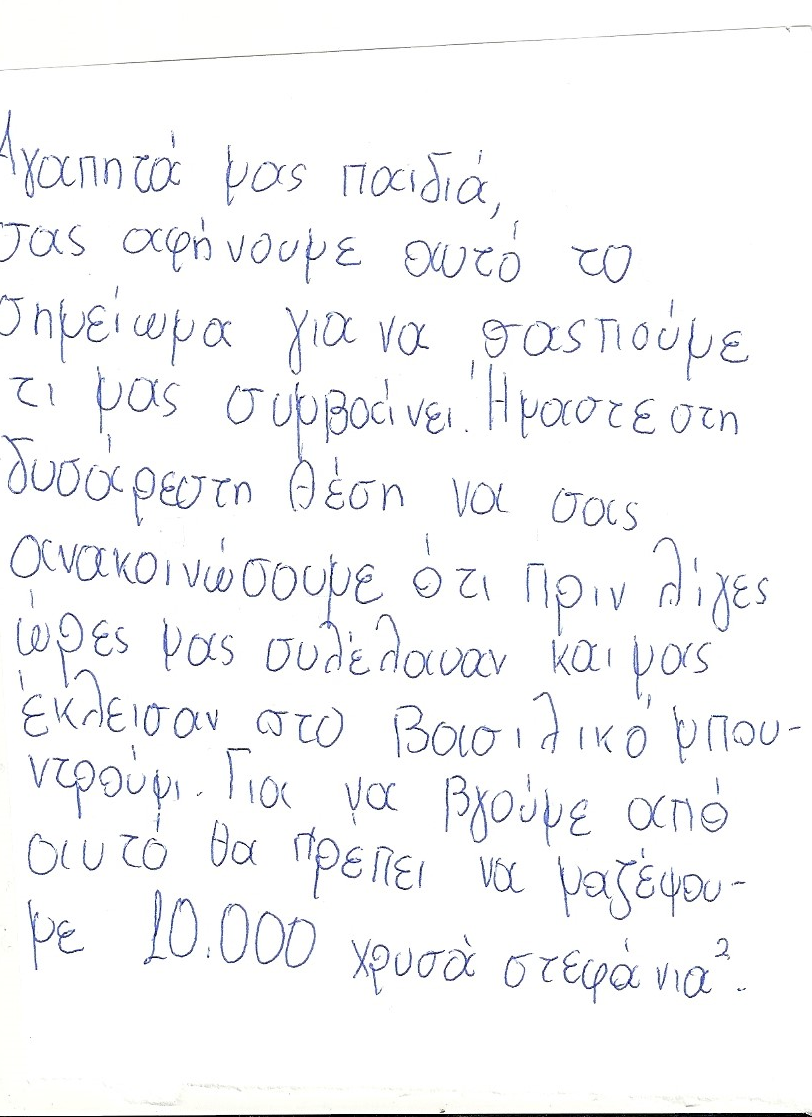 Αγαπητά μας παιδιά,
σας αφήνουμε αυτό το
σημείωμα για να σας πούμε
τι μας συμβαίνει. Ήμαστε στη
δυσάρεστη θέση να σας
ανακοινώσουμε ότι πριν λίγες
ώρες μας συλέλαυαν και μας
έκλεισαν στο βασιλικό μπου-
ντρούμι. Για να βγούμε από
αυτό θα πρέπει να μαζέψου-
με 10.000 χρυσά στεφάνια².